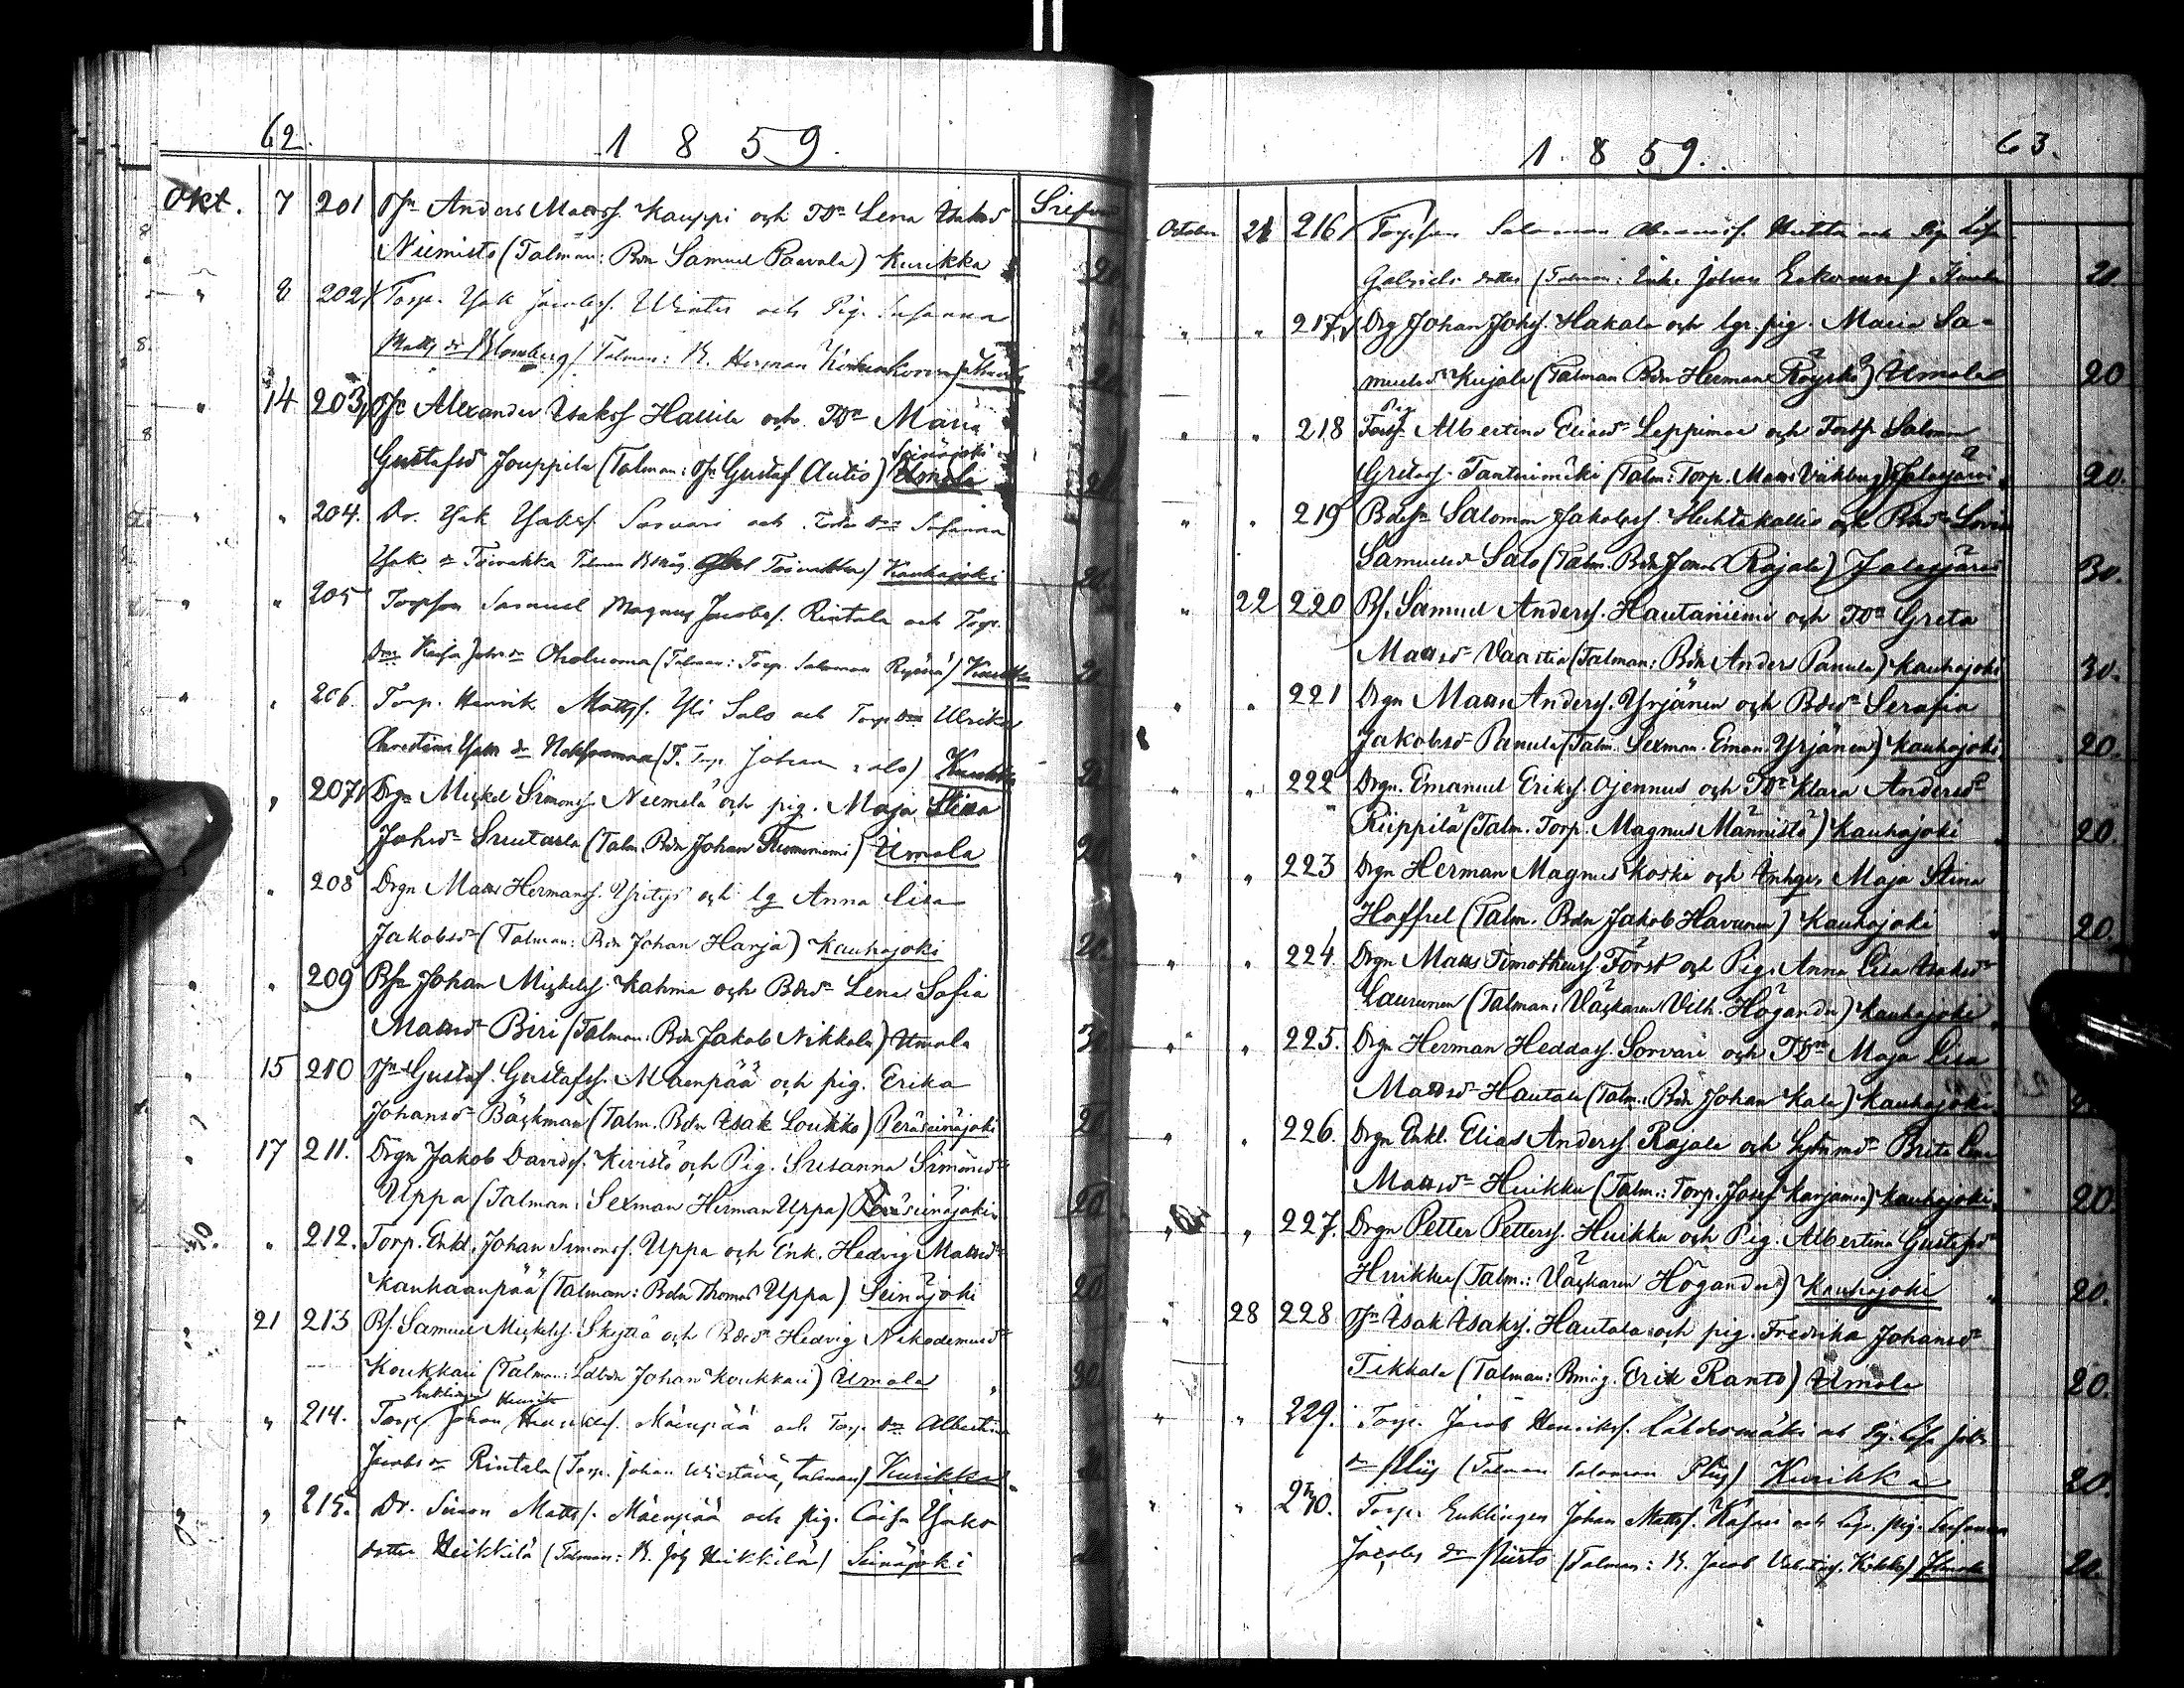 62.
1859.
Okt. 7 201 Anders Matss. Kauppi och TDr Lena Isaksd
Niemistö (Talman: Bdn Samuel Paavala) Kurikka 20
" 8 202 Torp. Isak Jacobss. Winter och Pig. Susanna
Matts dr Blomberg (Talman: B. Herman
" 14 203 Alexander Isakss Haurila och TDr Maria
Seinäjoki
Gustafsd Jouppila (Talman: Gustaf Autio) Ilmola 20
" " 204. Dr. Isak Isakss. Sorvari och Susanna
Isak dr Toivakka Talman Toivakka) Kauhajoki 20
" " 205 Torpson Samuel Magnus Jacobss. Rintala och Torp.
Dr Kajsa Joh. dr Oholuoma (Talman: Torp. Salomon) Kurikka
" " 206. Torp. Henrik Mattss. Yli Salo och Torp dr Ulrika
Christina Isak dr (T. Torp. Johan Salo) Kurikka
" 207 Drgn Mickel Simonss Niemelä och pig. Maja Stina
Johsd (Talm. Bdn Johan) Ilmola 20
" 208 Drgn Matts Hermanss. Yritys och lg Anna Lisa
Jakobsd (Talman: Bdn Johan Harja) Kauhajoki 20
" " 209 Bsn Johan Mickelss. Kahma och Bdsd Lena Sofia
Mattsd Biri (Talman. Bdn Jakob Nikkola) Ilmola 30
" 15 210 Gustaf Gustafss. Mäenpää och pig. Erika
Johansd Bäckman (Talm. Bdn Isak Loukko) Peräseinäjoki 20
" 17 211. Drgn Jakob Davidss. Kivistö och Pig. Susanna Simonsd
Uppa (Talman: Sexman Herman Uppa) Peräseinäjoki 20
" 212. Torp. Enkl. Johan Simonss. Uppa och Enk. Hedvig Mattsd
Kauhaanpää (Talman: Bdn Thomas Uppa) Seinäjoki 20
" 21 213 Bs. Samuel Mickelss. Skyttä och Bdsd Hedvig Nikodemusd
Koukkari (Talman: Ldbdn Johan Koukkari) Ilmola 30
Enklingen
" " 214. Torp. Johan Henrikss. Mäenpää och Torp. dr Albertina
Jacobs dr Rintala (Torp. Johan talman) Kurikka
" " 215. Dr. Simon Mattss. Mäenpää och Pig. Caisa Isaks
dotter Heikkilä (Talman: B. Heikkilä) Seinäjoki
63.
1859.
October 21 216 Torpson Salomon Abramss. Hutta och Pig. Lisa
Gabriels dotter (Talman: Johan Eskoman) 20.
" " 217 Drg Johan Johss. Hakala och lgr. pig. Maria Sa-
muelsd Kujala (Talman Bdn Herman Röyskö) Ilmola 20
" " 218 Albertina Eliasd Leppimaa och Salomon
Gretass. Tanttimäki (Talm: Torp. Matts) Jalasjärvi 20.
" " 219 Bdsn Salomon Jakobss. Huhtakallio och Bdsd Lovisa
Samuelsd Salo (Talm. Bdn Jonas Rajala) Jalasjärvi 30.
" 22 220 Bs. Samuel Anderss. Hautaniemi och TDr Greta
Mattsd Vaastia (Talman: Bdn Anders Panula) Kauhajoki 30.
" " 221 Drgn Matts Anderss. Yrjänen och Bdsd Serafia
Jakobsd Panula (Talm. Sexman. Eman. Yrjänen) Kauhajoki 20.
" " 222 Drgn. Emanuel Erikss. Ojennus och TDr Klara Andersd
Riippilä (Talm. Torp. Magnus Männistö) Kauhajoki 20.
" " 223 Drgn Herman Magnus Koski och Inhgs. Maja Stina
Hoffrel (Talm. Bdn Jakob Havunen) Kauhajoki 20.
" " 224 Drgn Matts Timotheuss. Först och Pig. Anna Lisa Isaksd
Laurunen (Talman: Väckaren Vilh. Högander) Kauhajoki
" " 225. Drgn Herman Heddass. Sorvari och TDr Maja Lisa
Mattsd Hautala (Talm.: Bdn Johan Kala) Kauhajoki
" " 226. Drgn Enkl. Elias Anderss. Rajala och Brita Lena
Mattsd Huikku (Talm.: Torp. Josef Karjamaa) Kauhajoki 20.
" " 227. Drgn Petter Petterss. Huikku och Pig. Albertina Gustafsd
Huikku (Talm.: Väckaren Högander) Kauhajoki 20.
" 28 228 Isak Isakss. Hautala och pig. Fredrika Johansd
Tikkala (Talman: Bmåg. Erik Ranto) Ilmola 20.
" " 229. Torp. Jacob Henrikss. Lähdesmäki och Pig. Lisa Joh.
dr Plys (Talman Salomon Plys) Kurikka 20.
" " 230. Torp. Enklingen Johan Mattss. Kasari och pig. Susanna
Jacobs dr (Talman: B. Jacob) 20.